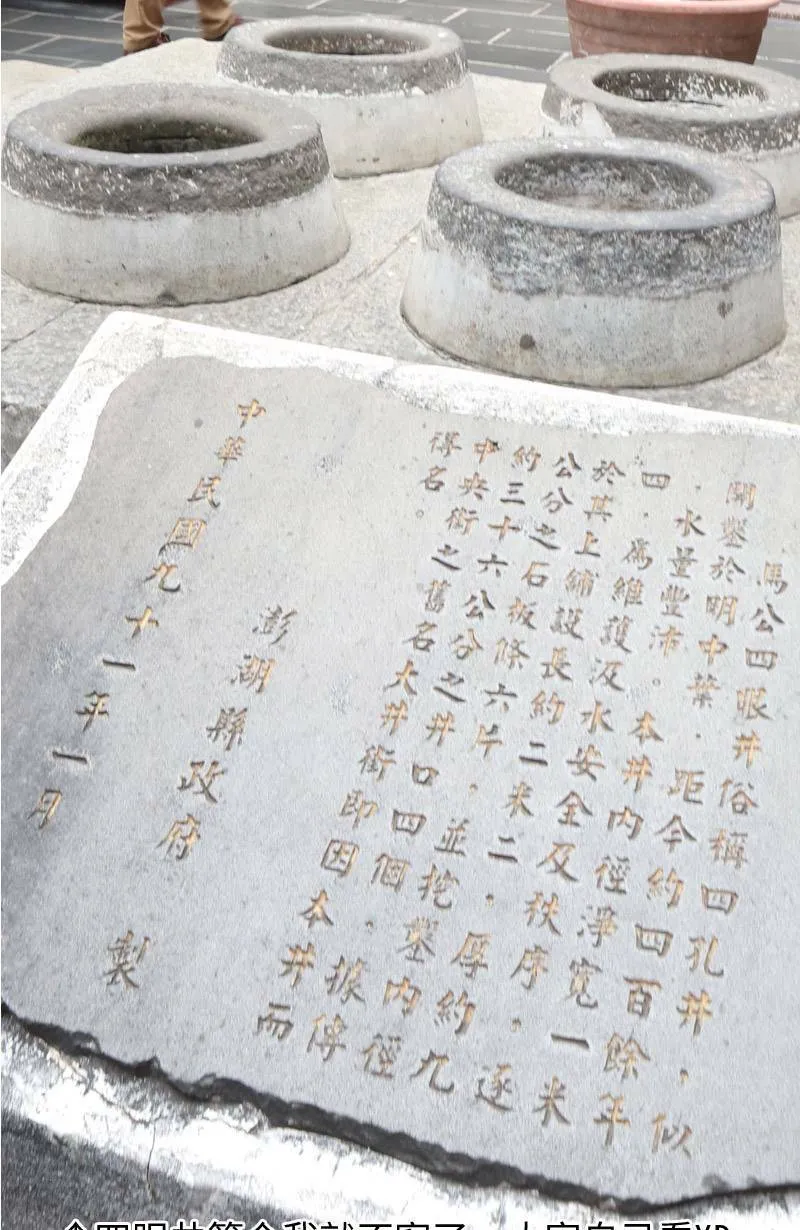 馬公四眼井俗稱四孔井,似
開鑿於明中葉.距今約四百餘年
.水量豐沛。本井內徑淨寬一米
四.爲維護汲水安全及秩序,逐
於其上鋪設長約二米二,厚約九
公分之石板條六片,並挖鑿內徑
約三十六公分之井口四個.據傳
中央街之舊名大井街即因本井而
得名。
彭湖縣政府 製
中華民國九十一年一月